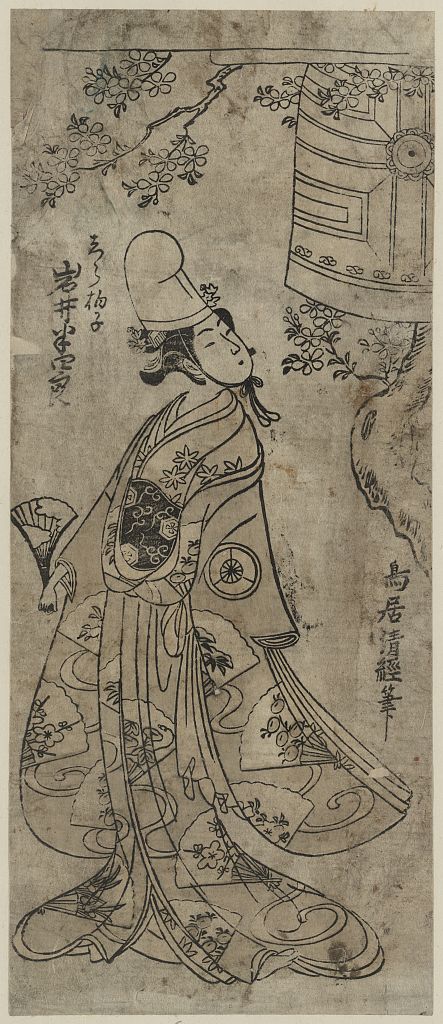 志ら拍子
岩井半四良
鳥居清經筆